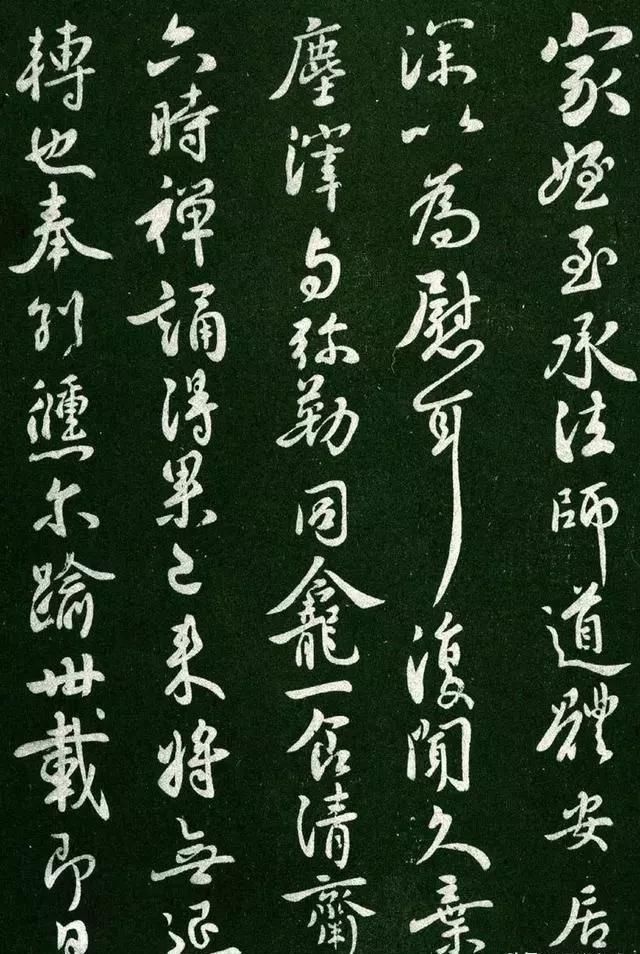 家姪至承法師道體安居
深以為慰耳復聞久棄
塵滓与弥勒同龕一食清齋
六時禪誦得果已来將無退
轉也奉別儵尔踰卅載即日